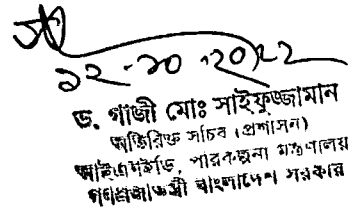 ১২-১০-২০২২
ড. গাজী মোঃ সাইফুজ্জামান
অতিরিক্ত সচিব (প্রশাসন)
আইএমইডি, পরিকল্পনা মন্ত্রণালয়
গণপ্রজাতন্ত্রী বাংলাদেশ সরকার